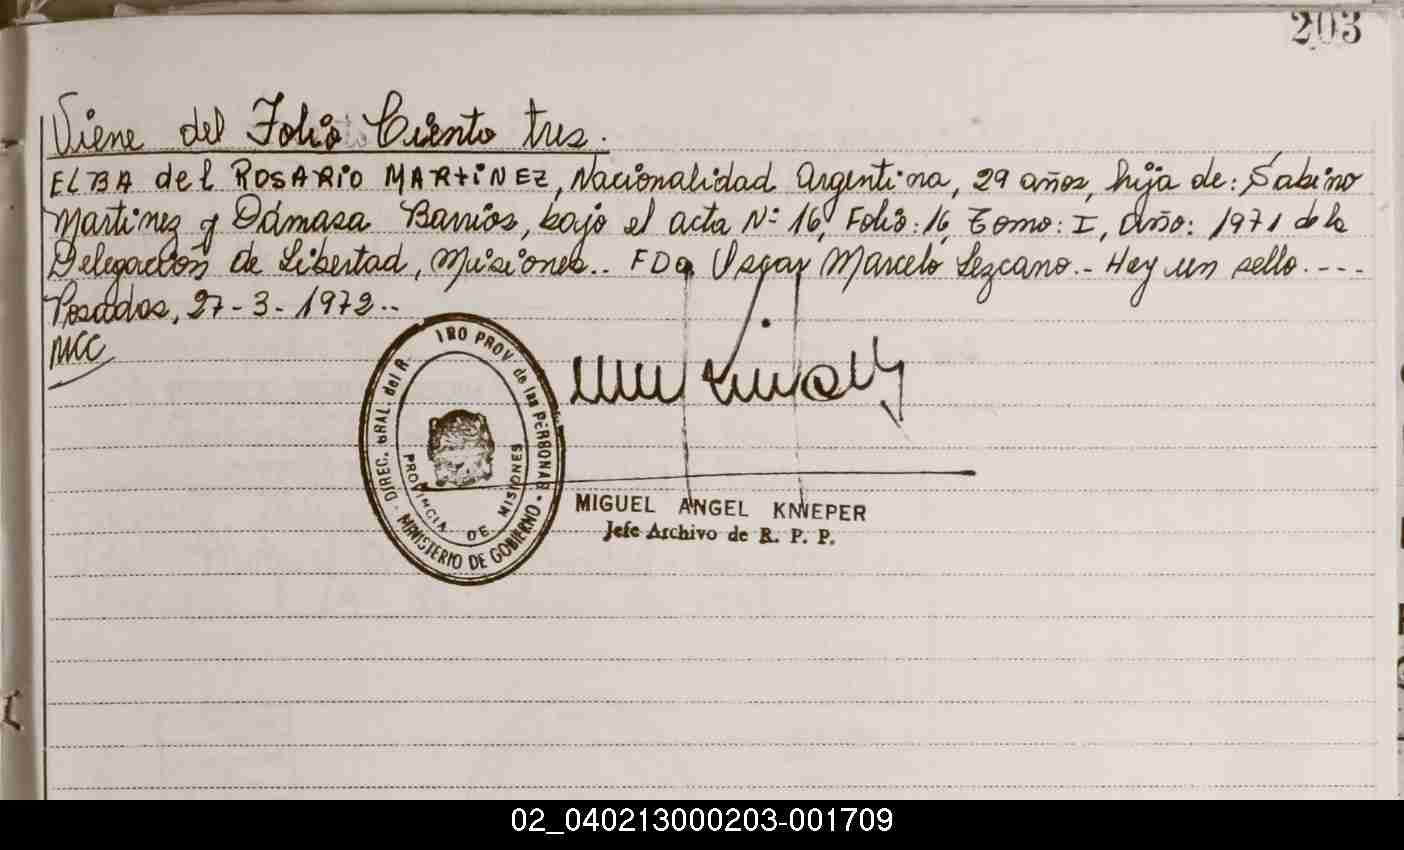 203
Viene del Folio Ciento tres.
ELBA del ROSARIO MARTINEZ, Nacionalidad Argentina, 29 años, hija de: Sabino
Martinez y Dámasa Barrios, bajo el acta Nº 16, Folio: 16, Tomo: I, Año: 1971 de la
Delegación de Libertad, Misiones.. FDO Oscar Marcelo Lezcano.- Hay un sello.---
Posadas, 27-3-1972..
MCC
DIREC. GRAL. del R. PROV. de las PERSONAS
MINISTERIO DE GOBIERNO
PROVINCIA DE MISIONES
MIGUEL ANGEL KNIEPER
Jefe Archivo de R. P. P.
02_040213000203-001709